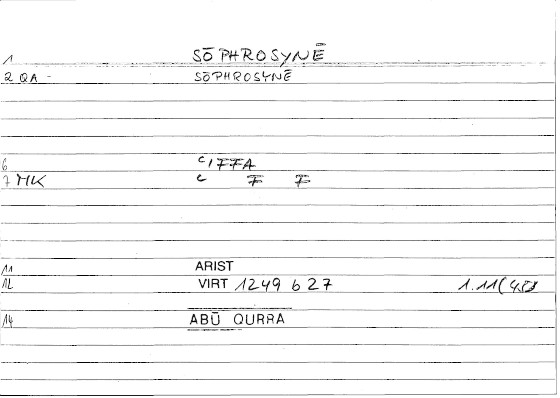 1 SŌPHROSYNĒ
2 QA - SŌPHROSYNĒ
6 ᶜIFFA
7 MK ᶜ F F
11 ARIST
12 VIRT 1249 b 27 1.11
14 ABŪ QURRA